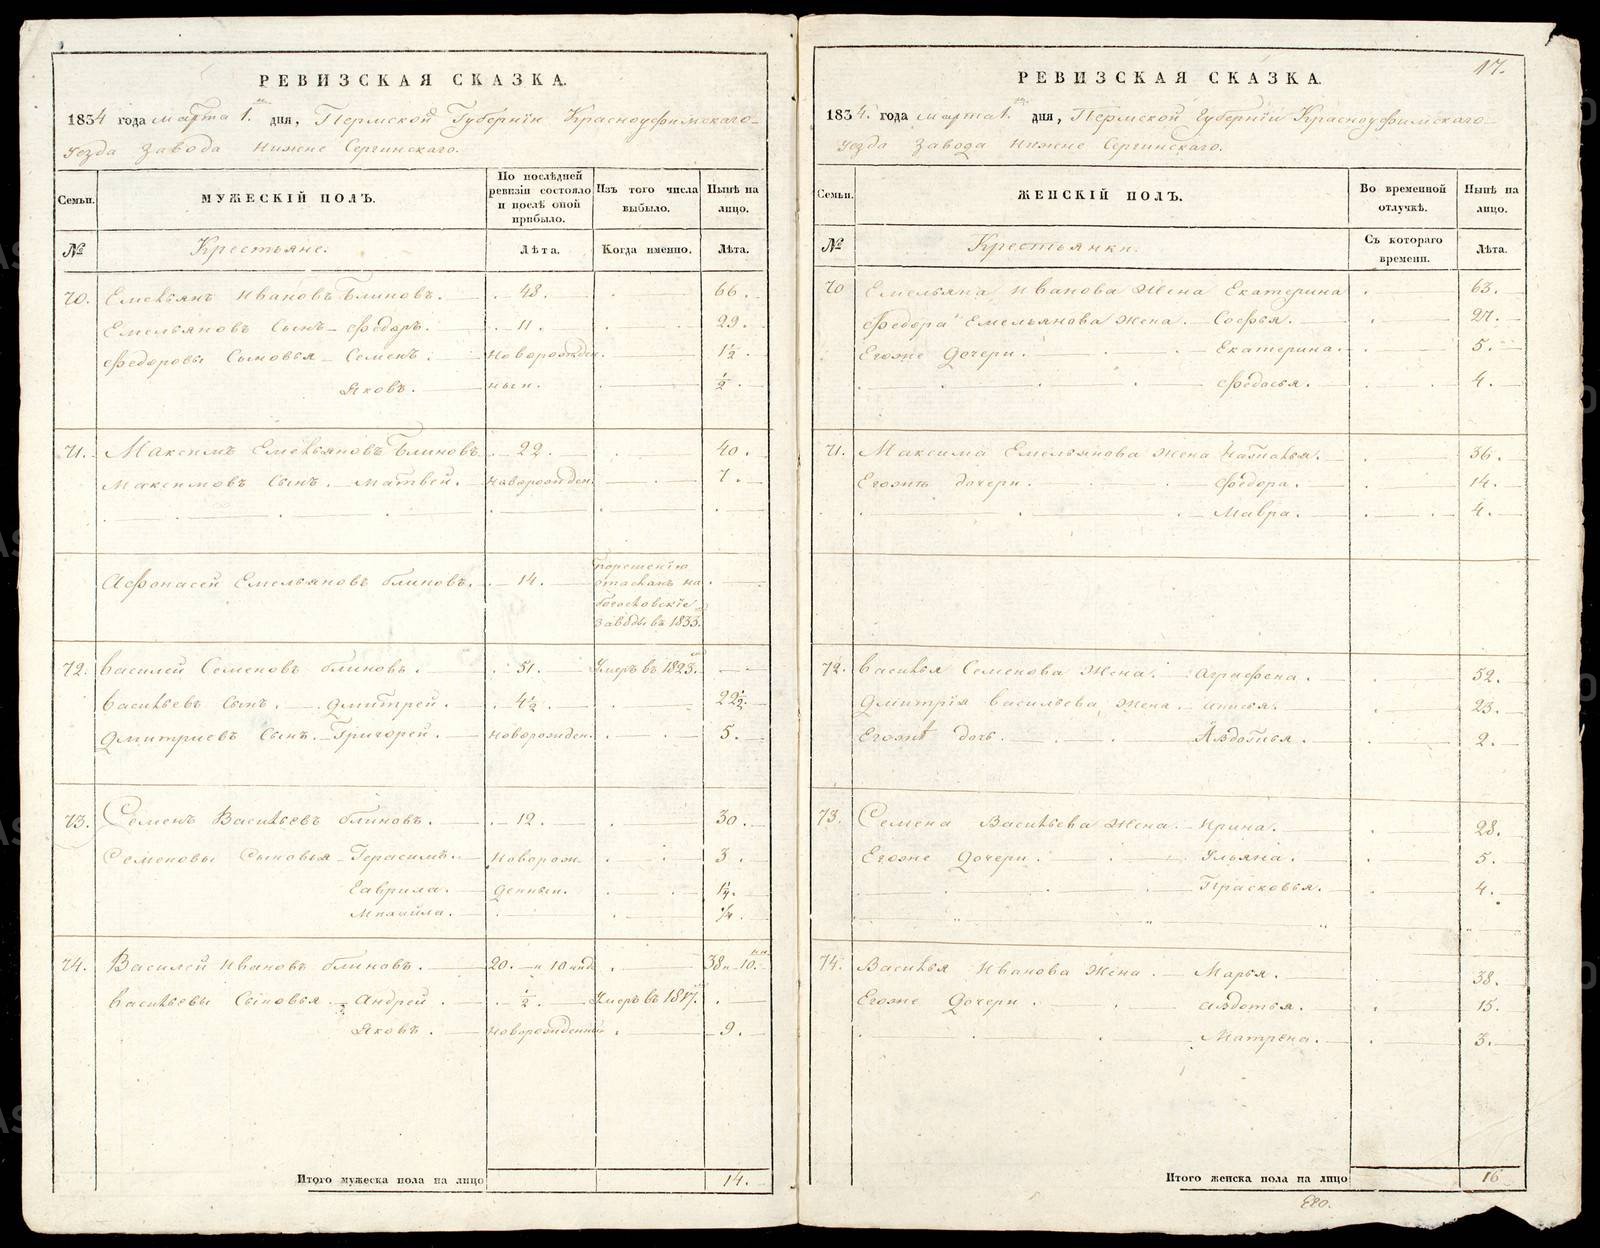 РЕВИЗСКАЯ СКАЗКА.
1834 года марта 1.го дня, Пермской Губернїи Красноуфимскаго
уезда завода Нижне Сергинскаго.
Семьи.
МУЖЕСКІЙ ПОЛЪ.
По послѣдней ревизіи состояло и послѣ оной прибыло.
Изъ того числа выбыло.
Нынѣ на лицо.
№
Крестьяне.
Лѣта.
Когда именно.
Лѣта.
70. Емельянъ Ивановъ Блиновъ. 48. 66.
Емельяновъ Сынъ Федоръ. 11. 29.
Федоровы Сыновья Семенъ. Новорожден 1½.
Яковъ. ныи. ½.
71. Максимъ Емельяновъ Блиновъ 22. 40.
Максимовъ Сынъ. Матвей. Новорожден. 7.
Афонасей Емельяновъ блиновъ. 14. порешенїю
отасланъ на
богословскїе
заводы въ 1833.
72. Василей Семеновъ блиновъ. 51. Умеръ въ 1823.
Васильевъ Сынъ. Дмитрей. 4½. 22½.
Дмитриевъ Сынъ. Григорей. Новорожден. 5.
73. Семенъ Васильевъ блиновъ. 12. 30.
Семеновы Сыновья Герасимъ. Новорож 3.
Гаврила. денныи. 1¼.
Михайла. ¼.
74. Василей Ивановъ блиновъ. 20. и 10 38 и 10.
Васильевы Сыновья Андрей ½. Умеръ въ 1817.
Яковъ. Новорожденныи 9.
Итого мужеска пола на лицо 14.
17.
РЕВИЗСКАЯ СКАЗКА.
1834. года марта 1.го дня, Пермской Губернїи Красноуфимскаго
уезда завода Нижне Сергинскаго.
Семьи.
ЖЕНСКІЙ ПОЛЪ.
Во временной отлучкѣ.
Нынѣ на лицо.
№
Крестьянки.
Съ котораго времени.
Лѣта.
70 Емельяна Иванова Жена Екатерина 63.
Федора Емельянова Жена. Софья. 27.
Егоже Дочери. Екатерина. 5.
Федосья. 4.
71. Максима Емельянова Жена Наталья. 36.
Егожъ дочери. Федора. 14.
Мавра. 4.
72. Василья Семенова Жена. Аграфена. 52.
Дмитрїя Васильева Жена. Анисья. 23.
Егожѣ дочь. Авдотья. 2.
73. Семена Васильева Жена. Ирина. 28.
Егоже Дочери. Ульяна. 5.
Прасковья. 4.
74. Василья Иванова Жена. Марья. 38.
Егоже Дочери. Авдотья. 15.
Матрена. 3.
Итого женска пола на лицо 16